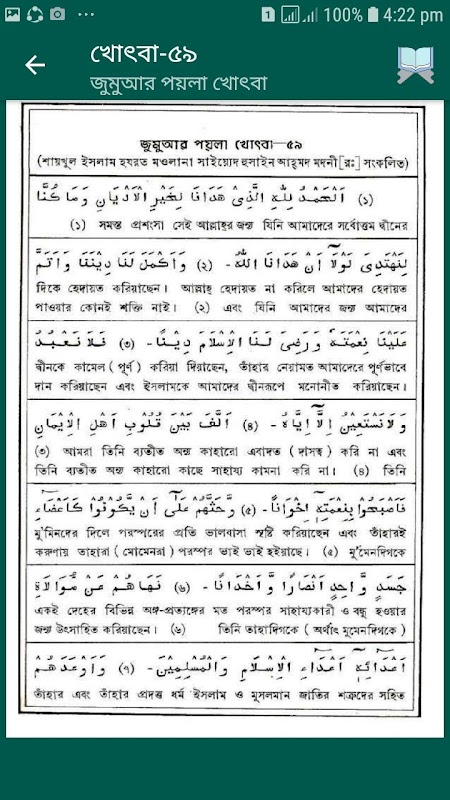 1 100% 4:22 pm
খোৎবা-৫৯
জুমুআর পয়লা খোৎবা
জুমুআর পয়লা খোৎবা—৫৯
(শায়খুল ইসলাম হযরত মওলানা সাইয়্যেদ হুসাইন আহ্মদ মদনী [রঃ] সংকলিত)
(১) اَلْحَمْدُ لِلّٰهِ الَّذِىْ هَدَانَا لِخَيْرِ الْاَدْيَانِ وَمَا كُنَّا
(১) সমস্ত প্রশংসা সেই আল্লাহ্‌র জন্য যিনি আমাদেরে সর্বোত্তম দ্বীনের
لِنَهْتَدِىَ لَوْلَا اَنْ هَدَانَا اللّٰهُ - (২) وَاَكْمَلَ لَنَا دِيْنَنَا وَاَتَمَّ
দিকে হেদায়ত করিয়াছেন। আল্লাহ্ হেদায়ত না করিলে আমাদের হেদায়ত
পাওয়ার কোনই শক্তি নাই। (২) এবং যিনি আমাদের জন্য আমাদের
عَلَيْنَا نِعْمَتَهٗ وَرَضِىَ لَنَا الْاِسْلَامَ دِيْنًا - (৩) فَلَا نَعْبُدُ
দ্বীনকে কামেল (পূর্ণ) করিয়া দিয়াছেন, তাঁহার নেয়ামত আমাদেরে পূর্ণভাবে
দান করিয়াছেন এবং ইসলামকে আমাদের দ্বীনরূপে মনোনীত করিয়াছেন।
وَلَا نَسْتَعِيْنُ اِلَّا اِيَّاهُ - (৪) اَلَّفَ بَيْنَ قُلُوْبِ اَهْلِ الْاِيْمَانِ
(৩) আমরা তিনি ব্যতীত অন্য কাহারো এবাদত (দাসত্ব) করি না এবং
তিনি ব্যতীত অন্য কাহারো কাছে সাহায্য কামনা করি না। (৪) তিনি
فَاَصْبَحُوْا بِنِعْمَتِهٖ اِخْوَانًا - (৫) وَحَثَّهُمْ عَلٰى اَنْ يَّكُوْنُوْا كَاَعْضَاءِ
মু'মিনদের দিলে পরস্পরের প্রতি ভালবাসা সৃষ্টি করিয়াছেন এবং তাঁহারই
করুণায় তাহারা (মোমেনরা) পরস্পর ভাই ভাই হইয়াছে। (৫) মু'মেনদিগকে
جَسَدٍ وَّاحِدٍ اَنْصَارًا وَّاَخْدَانًا - (৬) نَهَاهُمْ عَنْ مُّوَالَاةِ
একই দেহের বিভিন্ন অঙ্গ-প্রত্যঙ্গের মত পরস্পর সাহায্যকারী ও বন্ধু হওয়ার
জন্য উৎসাহিত করিয়াছেন। (৬) তিনি তাহাদিগকে (অর্থাৎ মুমেনদিগকে)
اَعْدَائِهٖ اَعْدَاءِ الْاِسْلَامِ وَالْمُسْلِمِيْنَ - (৭) وَاَوْعَدَهُمْ
তাঁহার এবং তাঁহার প্রদত্ত ধর্ম ইসলাম ও মুসলমান জাতির শত্রুদের সহিত